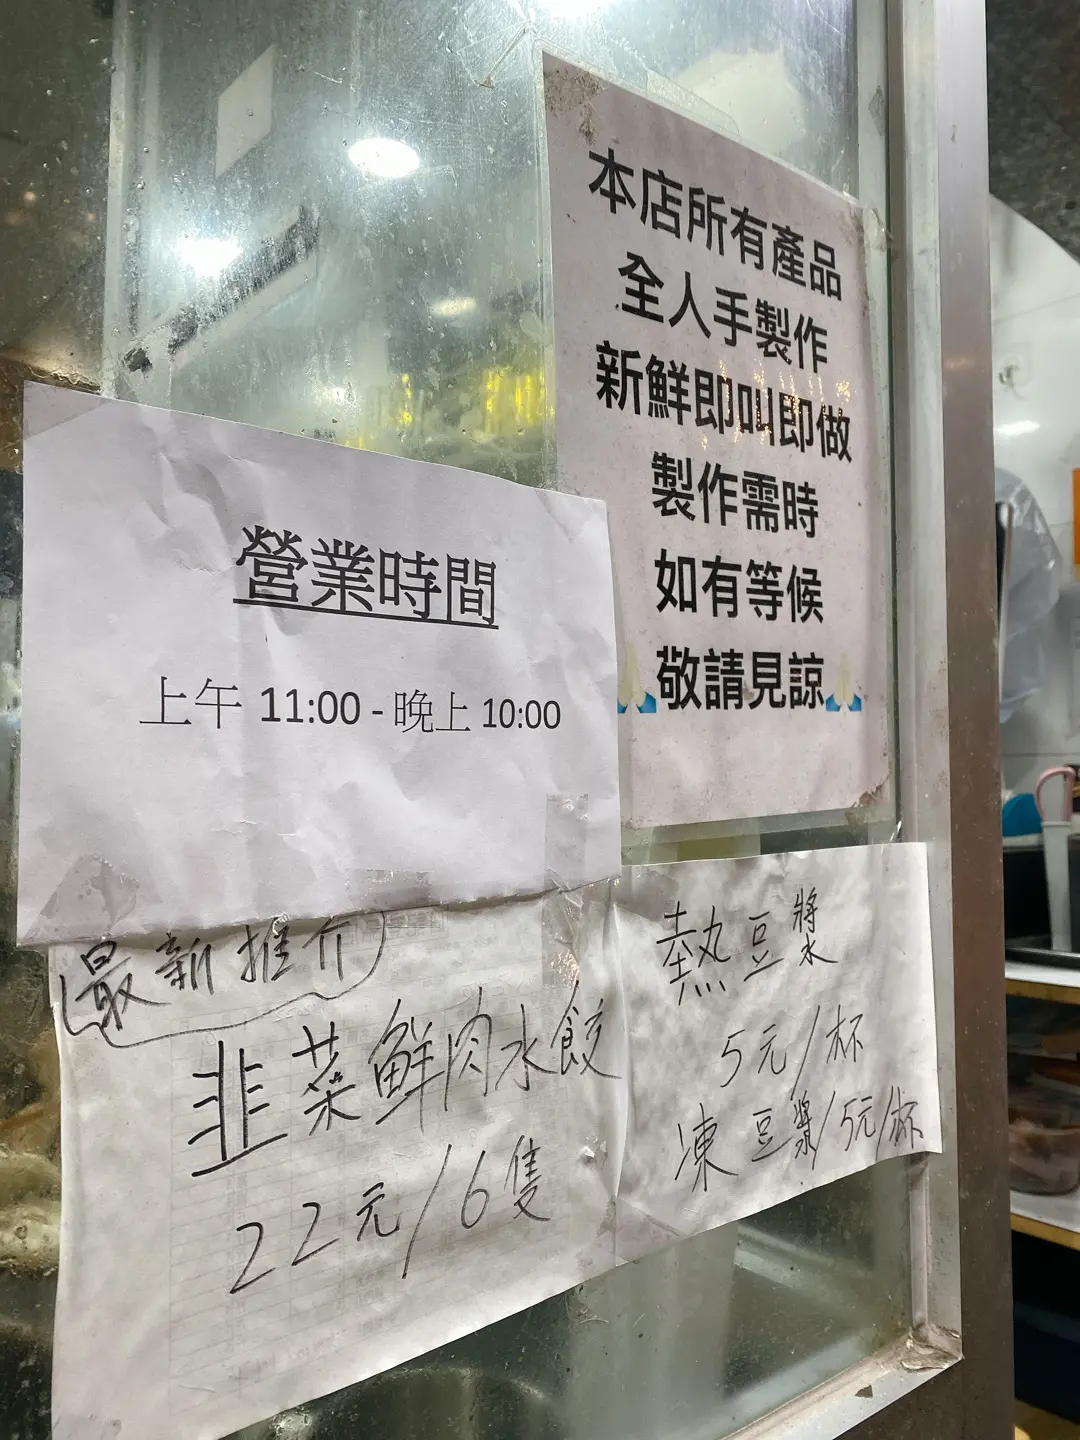 本店所有產品
全人手製作
新鮮即叫即做
製作需時
如有等候
敬請見諒
營業時間
上午 11:00 - 晚上 10:00
最新推介
韭菜鮮肉水餃
22元/6隻
熱豆漿
5元/杯
凍豆漿/5元/杯